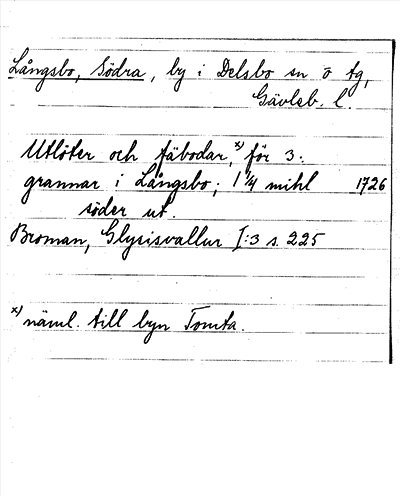 Långsbo, Södra, by i Delsbo sn o tg,
Gävleb. l.
Utlöter och fäbodar, x) för 3.
grannar i Långsbo; 1 1/4 mihl 1726
söder ut.
Broman, Glysisvallur I:3 s. 225
x) näml. till byn Tomta.